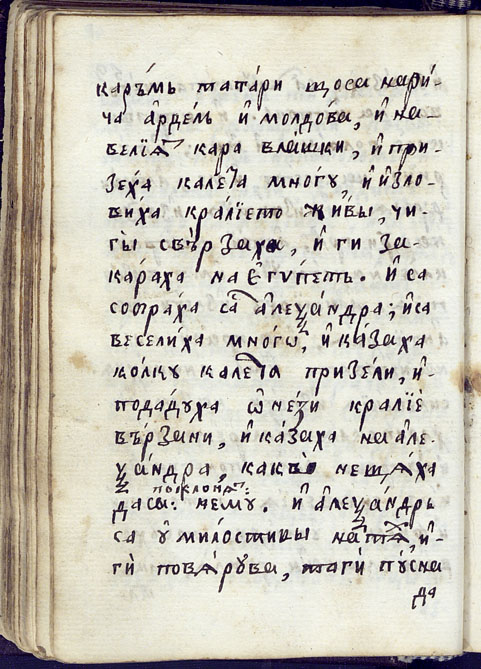 каръ́мь татáри що́са нари́-
ча а҆рдéль и҆ молдóва, и҆ на-
белїѧ̀ кара вла́шки, и҆ при-
зехá калета мно́гу, и҆ и҆зло-
ви́ха кра́лїето жи́вы, чи-
ги свърза́ха, и҆ ги за-
кара́ха на є҆гу́петь. и҆ са
собра́ха са а҆леѯáндра; и҆са
весели́ха мно́гѡ, и҆ ка́заха
ко́лку калетѧ призе́ли, и҆-
подаду́ха ѡ҆не́зи кра́лїе
вързани, и҆ ка́заха на але-
ѯáндра, какво̀ нещѧ́ха
поклонѧ̀:
даса: нему. и҆ а҆леѯáндрь
са ᲂу҆ми́лостивы на тѧ́х, и҆-
гѝ повѧ́рꙋва, тагѝ пꙋ́сна
да